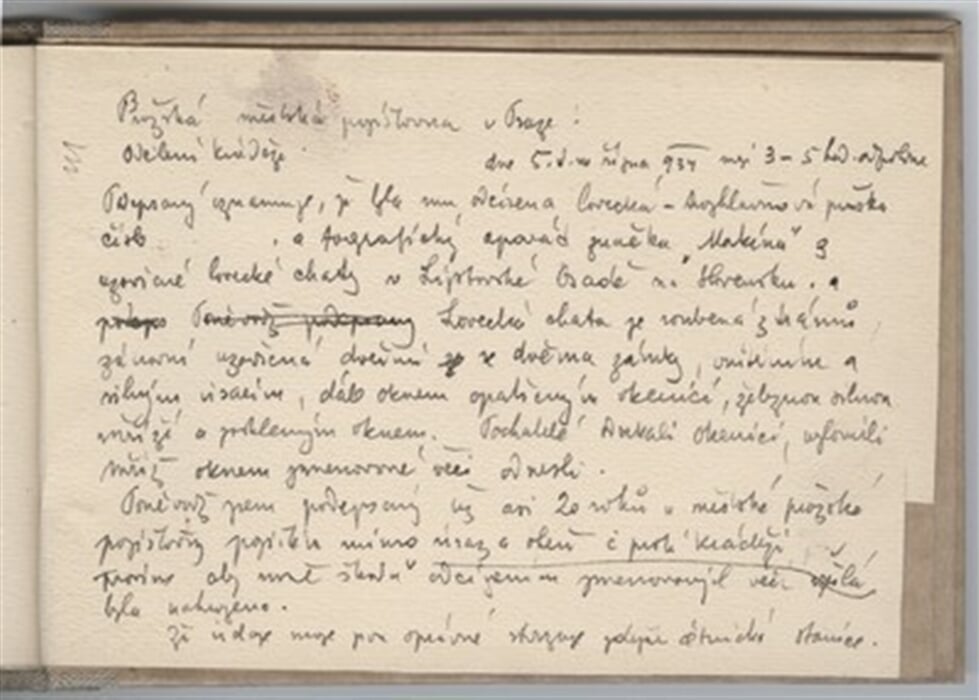 Pražská městská pojišťovna v Praze:
Oddělení krádeže. dne 5. října 934 mezi 3 – 5 hod. odpoledne
Podepsaný oznamuje, že byla mu odcizena lovecká –
čislo , a fotografický aparát značka „Makina" z
uzavřené lovecké chaty v Liptovské Osadě na Slovensku. a
Poněvadž podepsaný Lovecká chata je roubená z trámů,
uzavřená dveřmi ze dvěma zámky, vnitřním a
silným visacím, dále oknem opatřeným okenicí, železnou silnou
mříží a oknem. Pachatelé okenici, vylomili
mříž oknem jmenované věci odnesli.
Poněvadž jsem podepsaný již asi 20 roků u městské pražské
pojišťovny pojištěn mimo úraz a oheň č proti krádeži
prosím aby mně škoda odcizením jmenovaných věcí
byla nahrazena.
že údaje moje jsou správné zdejší četnická stanice.